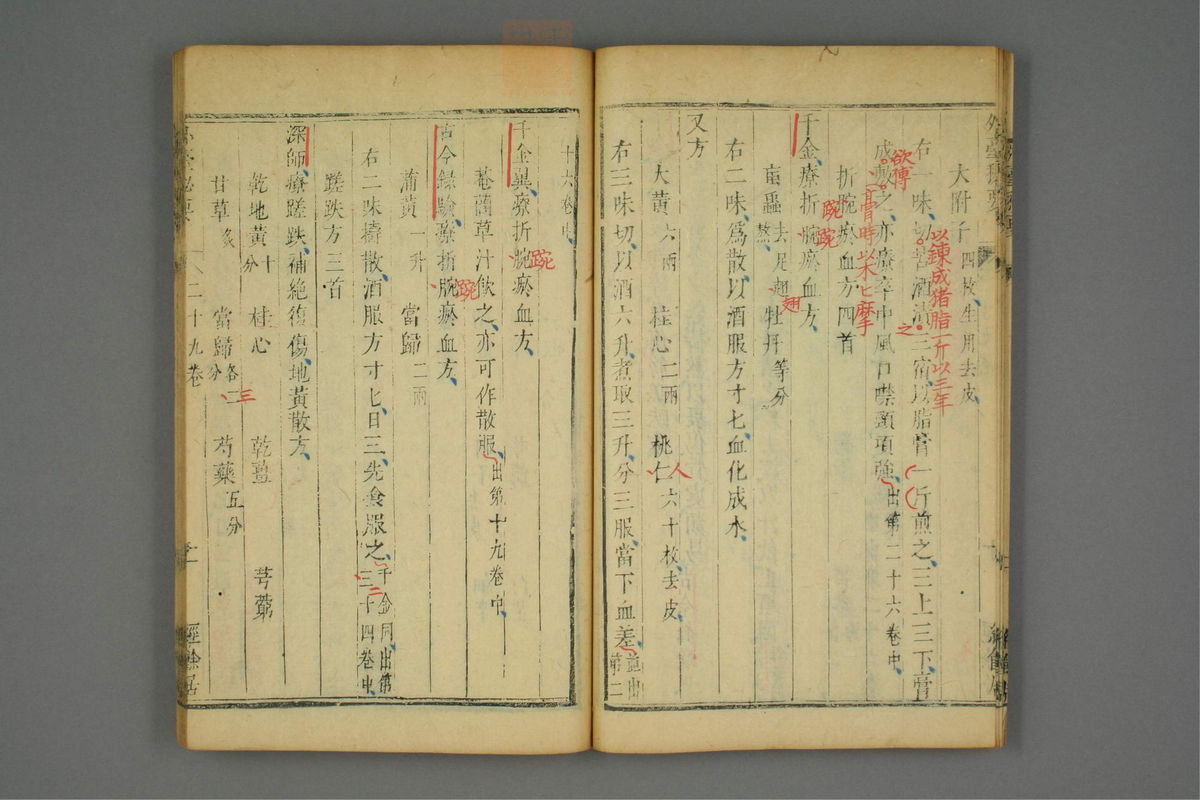 大附子四枚生用去皮
右一味切苦酒漬三宿以脂膏一斤煎之三上三下膏
以鍊成猪脂一斤以三年
之
成敷之亦療卒中風口噤頸項強出第二十六卷中
欲摶
膏時以木匕摩
折腕瘀血方四首
踠
千金療折腕瘀血方
踠
䖟蟲去足翅熬 牡丹等分
翅
右二味為散以酒服方寸匕血化成水
又方
大黃六兩 桂心二兩 桃仁六十枚去皮
人
右三味切以酒六升煮取三升分三服當下血差並出第二
十六卷中
千金翼療折腕瘀血方
踠
菴䕡草汁飲之亦可作散服出第十九卷中
古今錄驗療折腕瘀血方
踠
蒲黃一升 當歸二兩
右二味擣散酒服方寸匕日三先食服之千金同出第三十四卷中
二
蹉跌方三首
深師療蹉跌補絕復傷地黃散方
乾地黃十分 桂心 乾薑 芎藭
甘草炙 當歸各二分 芍藥五分
三
二十九卷
經餘居